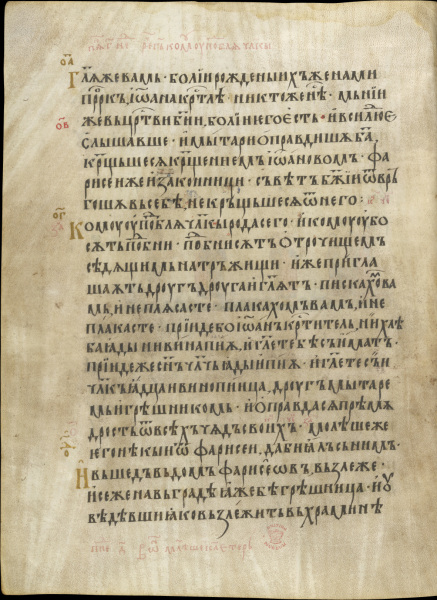 Гл҃ѧ же вамь · болїи рожденыихъ женами
прⷪркъ, їѡана крⷭтлѣ никтоже нѣⷭ · мьнїи
же въ црⷭтви б҃жїи, болїи него єсть · и вси людїе
слышавше · и мытари оправдишѧ б҃а
крⷭщьшесѧ крⷭщениемъ їѡановомъ · фа
рисеи же и законници · съвѣтъ бж҃їи ѿврь
гошѧ въ себѣ, не крⷭщьшесѧ ѿ него :
Комоу оупⷣоблѧ чл҃кы рода сего · и комоу оубо
сѧть пⷣобни · пⷣобни сѧтъ отрочищемъ
сѣдѧщимь на тръжищи · иже пригла
шаѧть дроугъ дроуга и гл҃ѧтъ · пискахѡⷨ ва
мь, и не плѧсасте · плакахомъ вамъ, и не
плакасте · прїиде бо їѡанъ кр҃ститель, ни хлѣ
ба їады ни вина пиѧ, и гл҃ете бѣсъ иматъ ·
прїиде же сн҃ъ чл҃чь їады и пиѧ · и гл҃ете се
чл҃къ їадца и винопиица, дроугъ мытаре
мь и грѣшникомь · и оправдасѧ прѣмѧ
дрость ѿ всѣхъ чѧдъ своихъ · молѣше же
его нѣкыи ѿ фарисеи, да бы їалъ съ нимъ ·
И въшедъ въ домъ фарисеѡвъ, възлеже ·
и се жена въ градѣ їаже бѣ грѣшница · и оу
вѣдѣвши їако възлежить въ храминѣ